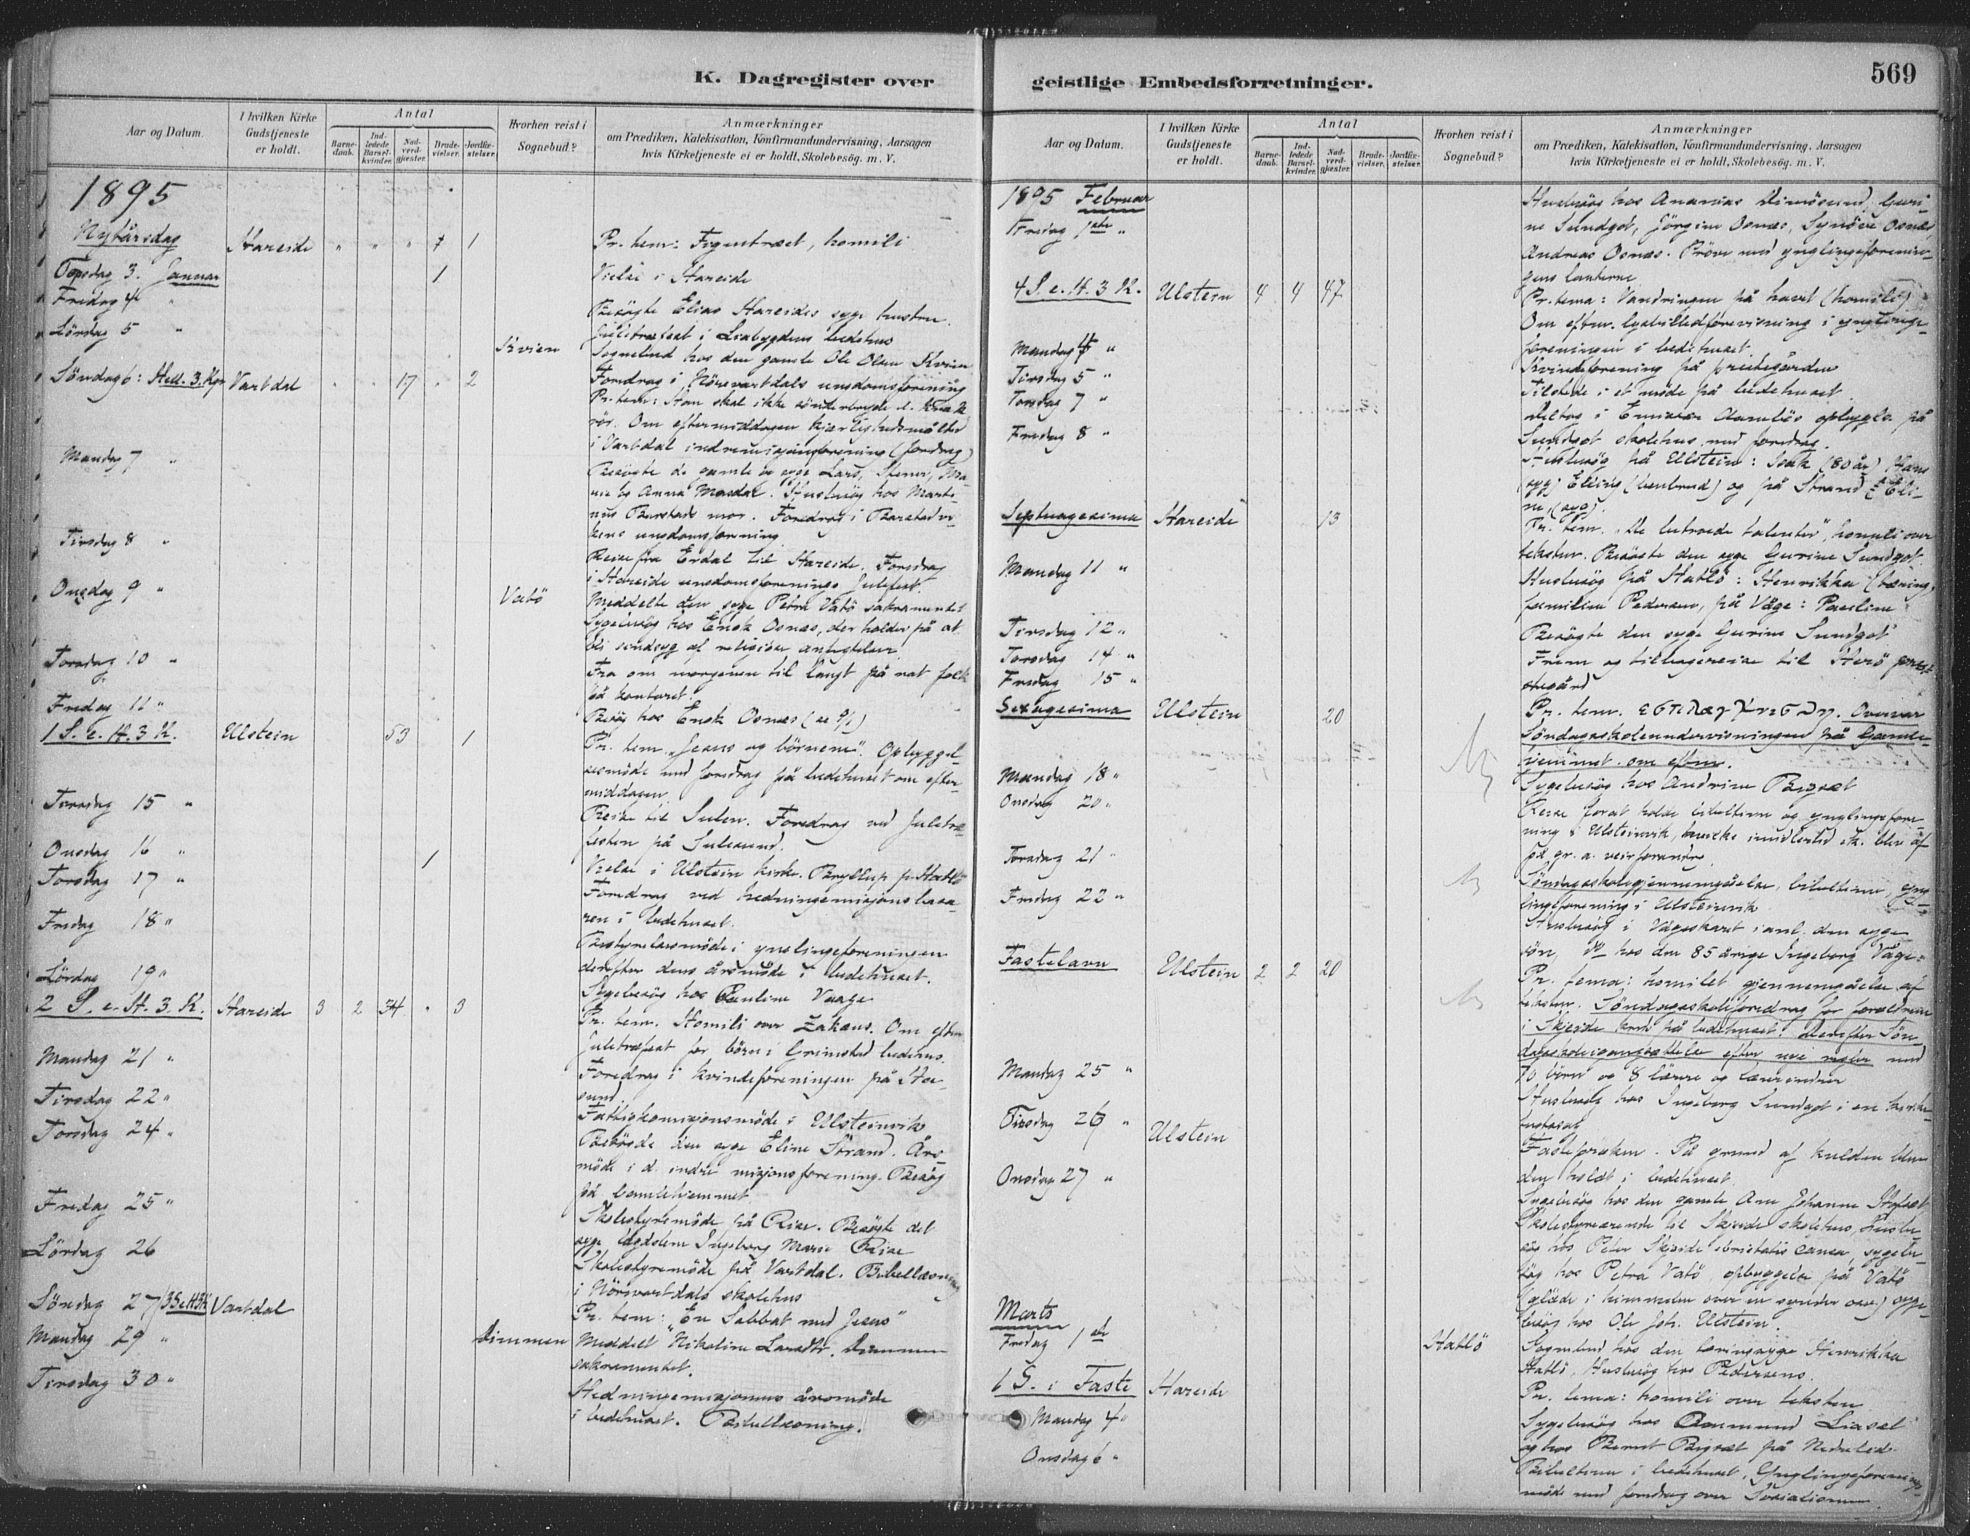 K. Dagregister over
geistlige Embedsforretninger.
569
Aar og Datum.
I hvilken Kirke Gudstjeneste er holdt.
Antal
Barnedaab.
Indledede Barselkvinder.
Nadverdgjester.
Brudevielser.
Jordfæstelser.
Hvorhen reist i Sognebud?
Anmærkninger
om Prædiken, Katekisation, Konfirmandundervisning, Aarsagen
hvis Kirketjeneste ei er holdt, Skolebesög. m. V.
1895
Nytårsdag Hareide " " " 7 1 Pr. tem: Figentræet, homili
Torsdag 3. Januar 1 Vielse i Hareide
Fredag 4 " Besøgte Elias Hareides syge hustru.
Lördag 5 " Juletræfest i Liabygdens bedehus
Kvien Sognebud hos den gamle Ole Olsen Kvien
Søndag 6: Hell. 3. Kgr Vartdal " " 17 " 2 Foredrag i Nörevartdals ungdomsforening
Pr. tem: Han skal ikke sönderbryde d. knækkede
rör. Om eftermiddagen kjærlighedsmåltid
i Vartdal indremisjonsforening (foredrag)
Mandag 7 " Besøgte de gamle og syge Lars, Stener, Ma-
rie og Anna Masdal. Husbesøg hos Marti-
nus Barstads mor. Foredrag i Barstadvi-
kens ungdomsforening
Tirsdag 8 " Reise fra Ersdal til Hareide. Foredrag
i Hareide ungdomsforenings Julefest.
Onsdag 9 " Vatö Meddelte den syge Petra Vatö sakramentet
Sygebesøg hos Ensk Osnæs, der holder på at
bli sindsyg af religiöse anfægtelser
Torsdag 10 " Fra om morgenen til langt på nat folk
på kontoret.
Fredag 11 " Besøg hos Ensk Osnæs (se 9/1)
1 S. e. H. 3 K. Ulstein 53 1 Pr. tem „Jesus og börnene". Opbyggel-
sesmöde med foredrag på bedehuset om efter-
middagen
Torsdag 15 " Reise til Sulen. Foredrag ved Juletræ-
festen på Sulesund.
Onsdag 16 " 1 Vielse i Ulstein kirke. Bryllup p. Hatlö
Torsdag 17 " Foredrag ved hedningemisjonsbasa-
ren i bedehuset.
Fredag 18 " Bestyrelsesmöde i ynglingeforeningen
derefter dens årsmöde i bedehuset.
Lördag 19 " Sygebesøg hos Pauline Vaage
2 S. e. H. 3. K. Hareide 3 2 34 " 3 Pr. tem. Homili over Zakæus. Om efterm
juletræfest for börn i Grimstad bedehus.
Mandag 21 " Foredrag i kvindeforeningen på Ha-
sund
Tirsdag 22 " Fattigkomisjonsmöde i Ulsteinvik
Torsdag 24 " Besögte den syge Eline Strand. Års-
möde i d. indre misjonsforening. Besøg
på gamlehjemmet
Fredag 25 " Skolestyremöde på Rise. Besøgte det
syge lægdslem Ingeborg Marie Rise
Lördag 26 Skolestyremöde på Vartdal. Bibellæsning
i Nörevartdals skolehus
Söndag 27/3SeH3K Vartdal Pr. tem: „En Sabbat med Jesus"
Mandag 29 " Dimmen Meddelt Nikoline Larsdtr. Dimmen
sakramentet.
Tirsdag 30 " Hedningemisjonens årsmöde
i bedehuset. Bibellæsning.
Aar og Datum.
I hvilken Kirke Gudstjeneste er holdt.
Antal
Barnedaab.
Indledede Barselkvinder.
Nadverdgjester.
Brudevielser.
Jordfæstelser.
Hvorhen reist i Sognebud?
Anmærkninger
om Prædiken, Katekisation, Konfirmandundervisning, Aarsagen
hvis Kirketjeneste ei er holdt, Skolebesög. m. V.
1895 Februar
Fredag 1ste " Husbesøg hos Ananias Dimösund, Guri-
ne Sundgot, Jörgine Osnæs, Synöve Osnæs
Andreas Osnæs. Pröve med ynglingeforenin-
gens lanterne
4 S. e. H. 3 K. Ulstein 4 4 47 Pr. tema: Vandringen på havet (homili)
Om efterm. lysbilledforevisning i ynglinge-
foreningen i bedehuset.
Mandag 4 " Kvindeforening på prestegården
Tirsdag 5 " Tilstede i et möde på bedehuset
Torsdag 7 " deltog i Emissær opbyggelse på
Sundgot skolehus med foredrag.
Fredag 8 " Husbesøg på Ulstein: Isak (80 år) Hans
(syg) Elling og på Strand Eli-
ne, (syg).
Septuagesima Hareide 13 Pr. tem. „De betroede talenter", homili over
teksten. Besøgte den syge Gurine Sundgot
Mandag 11 " Husbesøg på Hatlö: Henrikka (tæring)
familien Pedersen, på Våge: Pauline
Tirsdag 12 " Besøgte den syge Gurine Sundgot
Torsdag 14 " Frem og tilbagereise til Herö prest-
Fredag 15 " egård
Sexagesima Ulstein 20 Pr. tem. Overvar
Söndagsskoleundervisningen på Gamle-
hjemmet om efterm.
Mandag 18 " Sygebesøg hos Andrine Rigsæt
Onsdag 20 " Reise forat holde bibeltime og ynglingefore-
ning i Ulsteinvik, hvilke imidlertid blev af
på gr. a. veirforandr.
Torsdag 21 " Söndagsskolegjennemgåelse, bibeltime, yng-
lingeforening i Ulsteinvik
Fredag 22 " Husbesøg i Vågeskaret i anl. den syge
sön, hos den 85 årige Ingeborg Våge.
Fastelavn Ulstein 2 2 20 Pr. tema: homilet gjennemgåelse af
teksten. Söndagsskoleforedrag for forældrene
i Skjeide kreds på bedehuset. Derefter Sön-
dagsskoleigangsættelse efter nye regler med
70 börn og 8 lærere og lærerinder
Mandag 25 " Husbesøg hos Ingeborg Sundgot i en kirke-
Tirsdag 26 " Ulstein Fastepræken. På grund af kulden blev
den holdt i bedehuset.
Onsdag 27 " Sygebesøg hos den gamle Ane Johanne Hofset
Skolestyreærende til Skjeide skolehus, husbe-
søg hos Peter Skjeide, sygebe-
søg hos Petra Vatö, opbyggelse på Vatö
(glæde i himmelen over en synder osv.) syge-
besøg hos Ole Joh. Ulstein.
Marts
Fredag 1ste Hatlö Sognebud hos den tæringssyge Henrikka
Hatlö, Husbesøg hos Pedersens.
1 S. i Faste Hareide Pr. tema: homili over teksten
Mandag 4 " Sygebesøg hos Rasmund Liaset
og hos Bernt Rigsæt på Nedrelid.
Onsdag 6 " Bibeltime i bedehuset. Ynglingeforenings-
möde med foredrag over Socialismen.